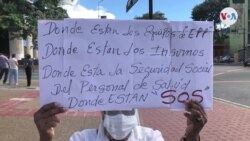 Donde Estan los Equipos de EPP
Donde Estan los Insumos
Donde Esta la Seguridad Social
Del Personal de Salud
Donde ESTAN "SOS"
VOA